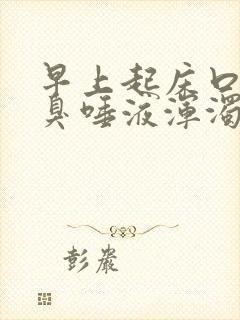 早上起床口
臭唾液浑浊
彭岩